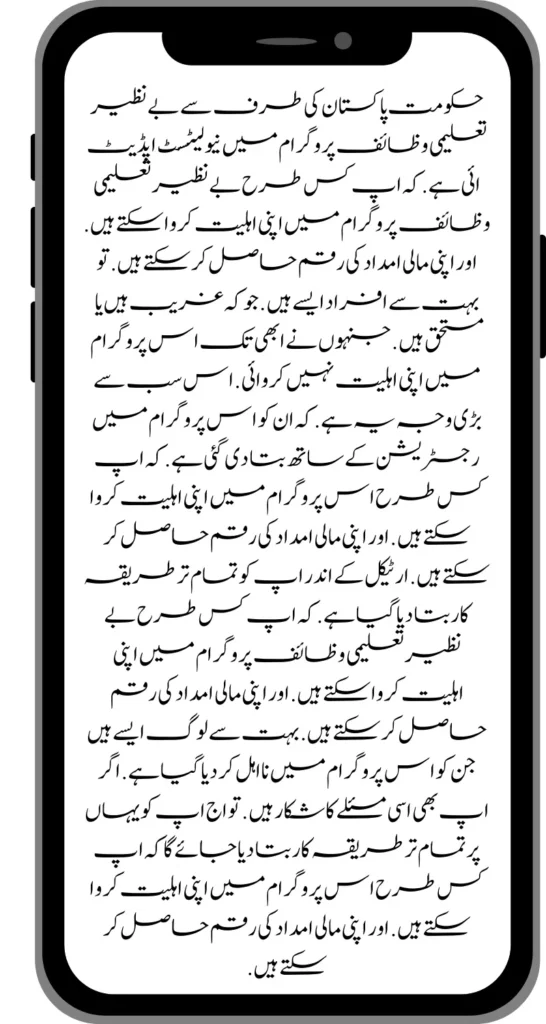 حکومت پاکستان کی طرف سے بے نظیر
تعلیمی وظائف پروگرام میں نیو لیٹسٹ اپڈیٹ
ائی ہے. کہ اپ کس طرح بے نظیر تعلیمی
وظائف پروگرام میں اپنی اہلیت کروا سکتے ہیں.
اور اپنی مالی امداد کی رقم حاصل کر سکتے ہیں. تو
بہت سے افراد ایسے ہیں. جو کہ غریب ہیں یا
مستحق ہیں. جنہوں نے ابھی تک اس پروگرام
میں اپنی اہلیت نہیں کروائی. اس سب سے
بڑی وجہ یہ ہے. کہ ان کو اس پروگرام میں
رجسٹریشن کے ساتھ بتا دی گئی ہے. کہ اپ
کس طرح اس پروگرام میں اپنی اہلیت کروا
سکتے ہیں. اور اپنی مالی امداد کی رقم حاصل کر
سکتے ہیں. ارٹیکل کے اندر اپ کو تمام تر طریقہ
کار بتا دیا گیا ہے. کہ اپ کس طرح بے
نظیر تعلیمی وظائف پروگرام میں اپنی
اہلیت کروا سکتے ہیں. اور اپنی مالی امداد کی رقم
حاصل کر سکتے ہیں. بہت سے لوگ ایسے ہیں
جن کو اس پروگرام میں نااہل کر دیا گیا ہے. اگر
اپ بھی اسی مسئلے کا شکار ہیں. تو اج اپ کو یہاں
پر تمام تر طریقہ کار بتا دیا جائے گا کہ اپ
کس طرح اس پروگرام میں اپنی اہلیت کروا
سکتے ہیں. اور اپنی مالی امداد کی رقم حاصل کر
سکتے ہیں.